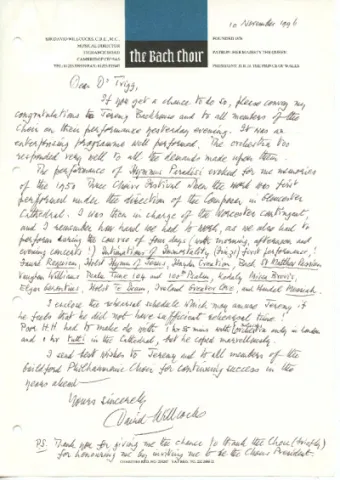 SIR DAVID WILLCOCKS, C.B.E., M.C.
MUSICAL DIRECTOR
FOUNDED 1876
the Bach choir
10 November 1996
Dear Dr Trigg,
If you get a chance to do so, please convey my
congratulations to Jeremy Backhouse and to all members of the
Choir on their performance yesterday evening. It was an
enterprising programme well performed. The orchestra too
responded very well to all the demands made upon them.
The performance of Hymnus Paradisi evoked for me memories
of the 1950 Three Choirs Festival when the work was first
performed under the direction of the Composer, in Gloucester
Cathedral. I was then in charge of the Worcester contingent,
and I remember how hard we had to work, as we also had to
perform during the course of four days (with morning, afternoon and
evening concerts!) Intimations of Immortality (Finzi) first performance!
Fauré Requiem, Holst Hymn of Jesus, Haydn Creation, Bach St Matthew Passion
Vaughan Williams and 100th Psalm, Kodaly Missa Brevis,
Elgar Gerontius, Holst Te Deum, Ireland Greater Love, and Handel Messiah.
I enclose the rehearsal schedule which may amuse Jeremy if
he feels that he did not have sufficient rehearsal time!
Poor H.H. had to make do with 1 hr 50 mins with orchestra only in London
and 1 hr tutti in the Cathedral, but he coped marvellously.
I send best wishes to Jeremy and to all members of the
Guildford Philharmonic Choir for continuing success in the
years ahead
Yours sincerely
David Willcocks
PS. Thank you for giving me the chance to thank the Choir (briefly)
for honouring me by inviting me to be the Choir's President.